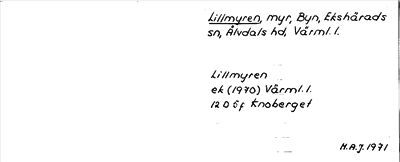 Lillmyren, myr, Byn, Ekshärads
sn, Älvdals hd, Värml. l.
Lillmyren
ek (1970) Värml. l.
12 D 6f Knoberget
H.A.J. 1971